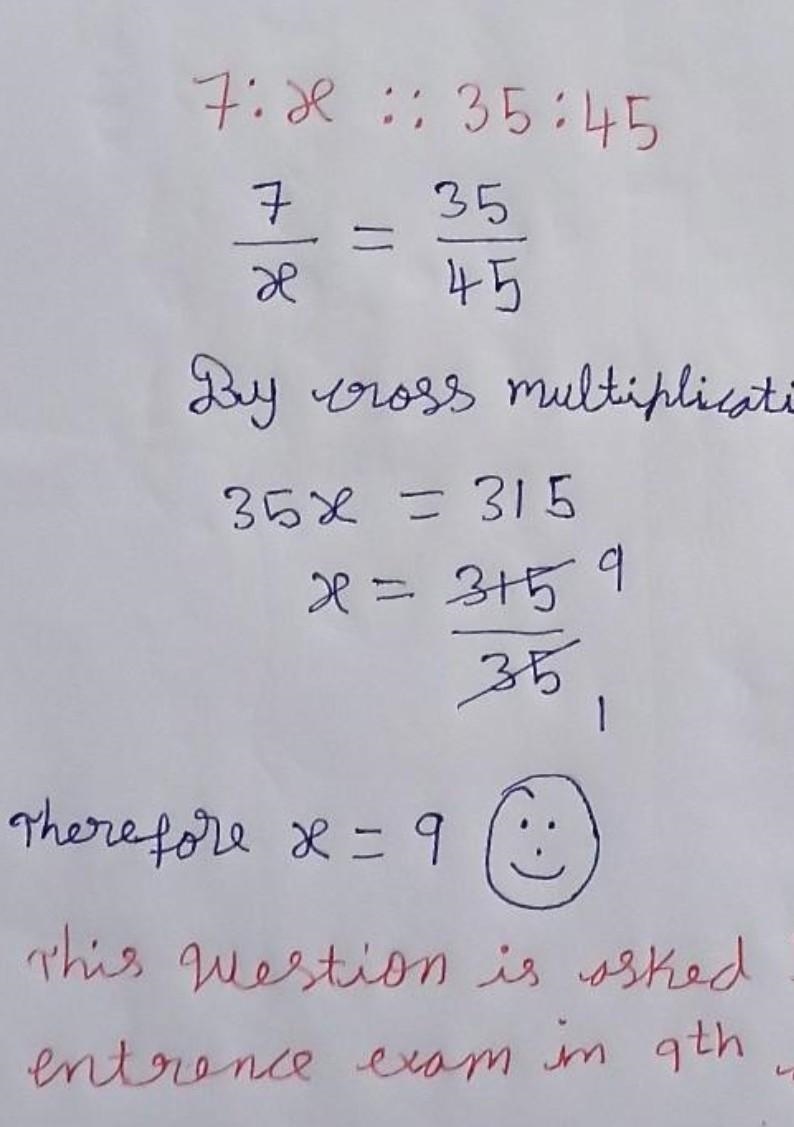 7:x :: 35:45
7/x = 35/45
By cross multiplicati
35x = 315
x = 315/35 9 1
Therefore x = 9
This question is asked
entrence exam in 9th